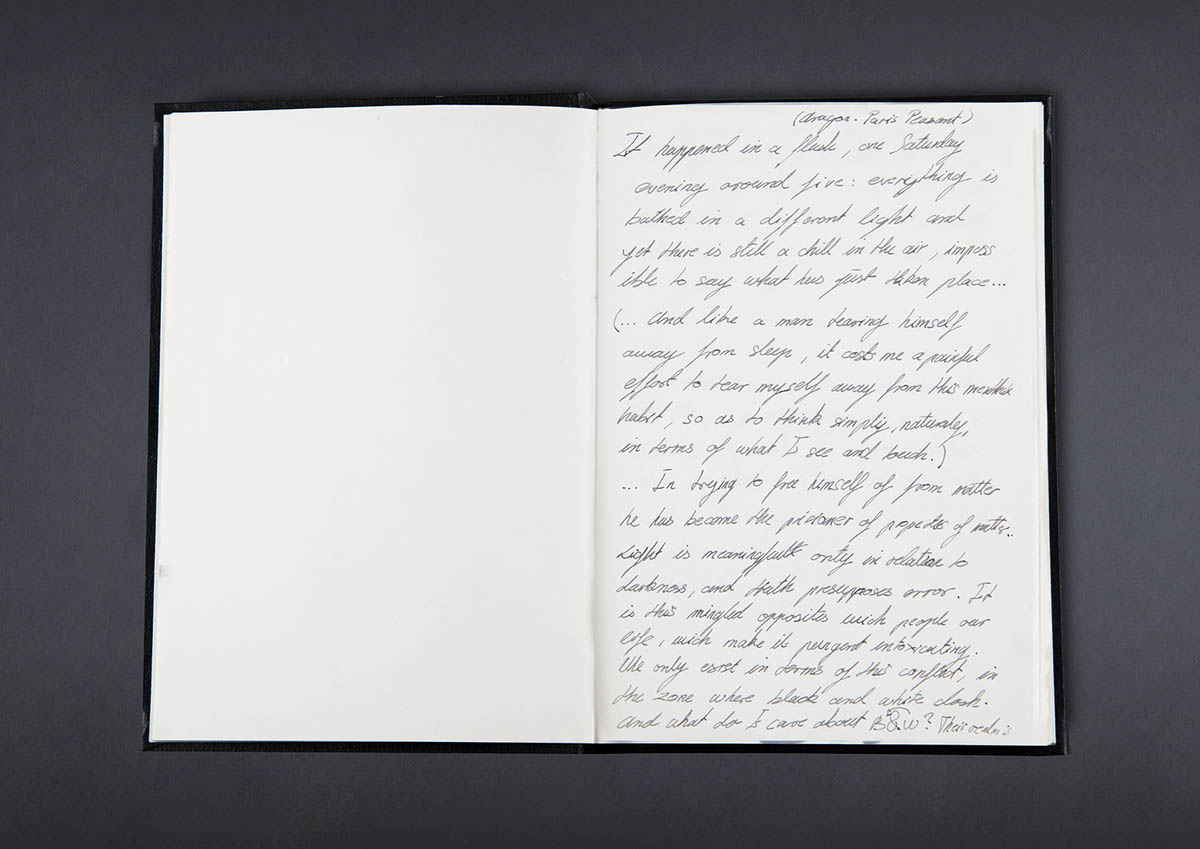 (Aragon. Paris Peasant)
It happened in a flash, one Saturday
evening around five: everything is
bathed in a different light and
yet there is still a chill in the air, imposs
ible to say what has just taken place...
(... And like a man tearing himself
away from sleep, it costs me a painful
effort to tear myself away from this
habit, so as to think simply, naturaly,
in terms of what I see and touch.)
... In trying to free himself of from matter
he has become the prisoner of of matter..
Light is only in relation to
darkness, and truth presupposes error. It
is this mingled opposites wich people our
life, wich make it pungent intoxicating.
We only exist in terms of this conflict, in
the zone where black and white clash.
And what do I care about B&W? Their realm is